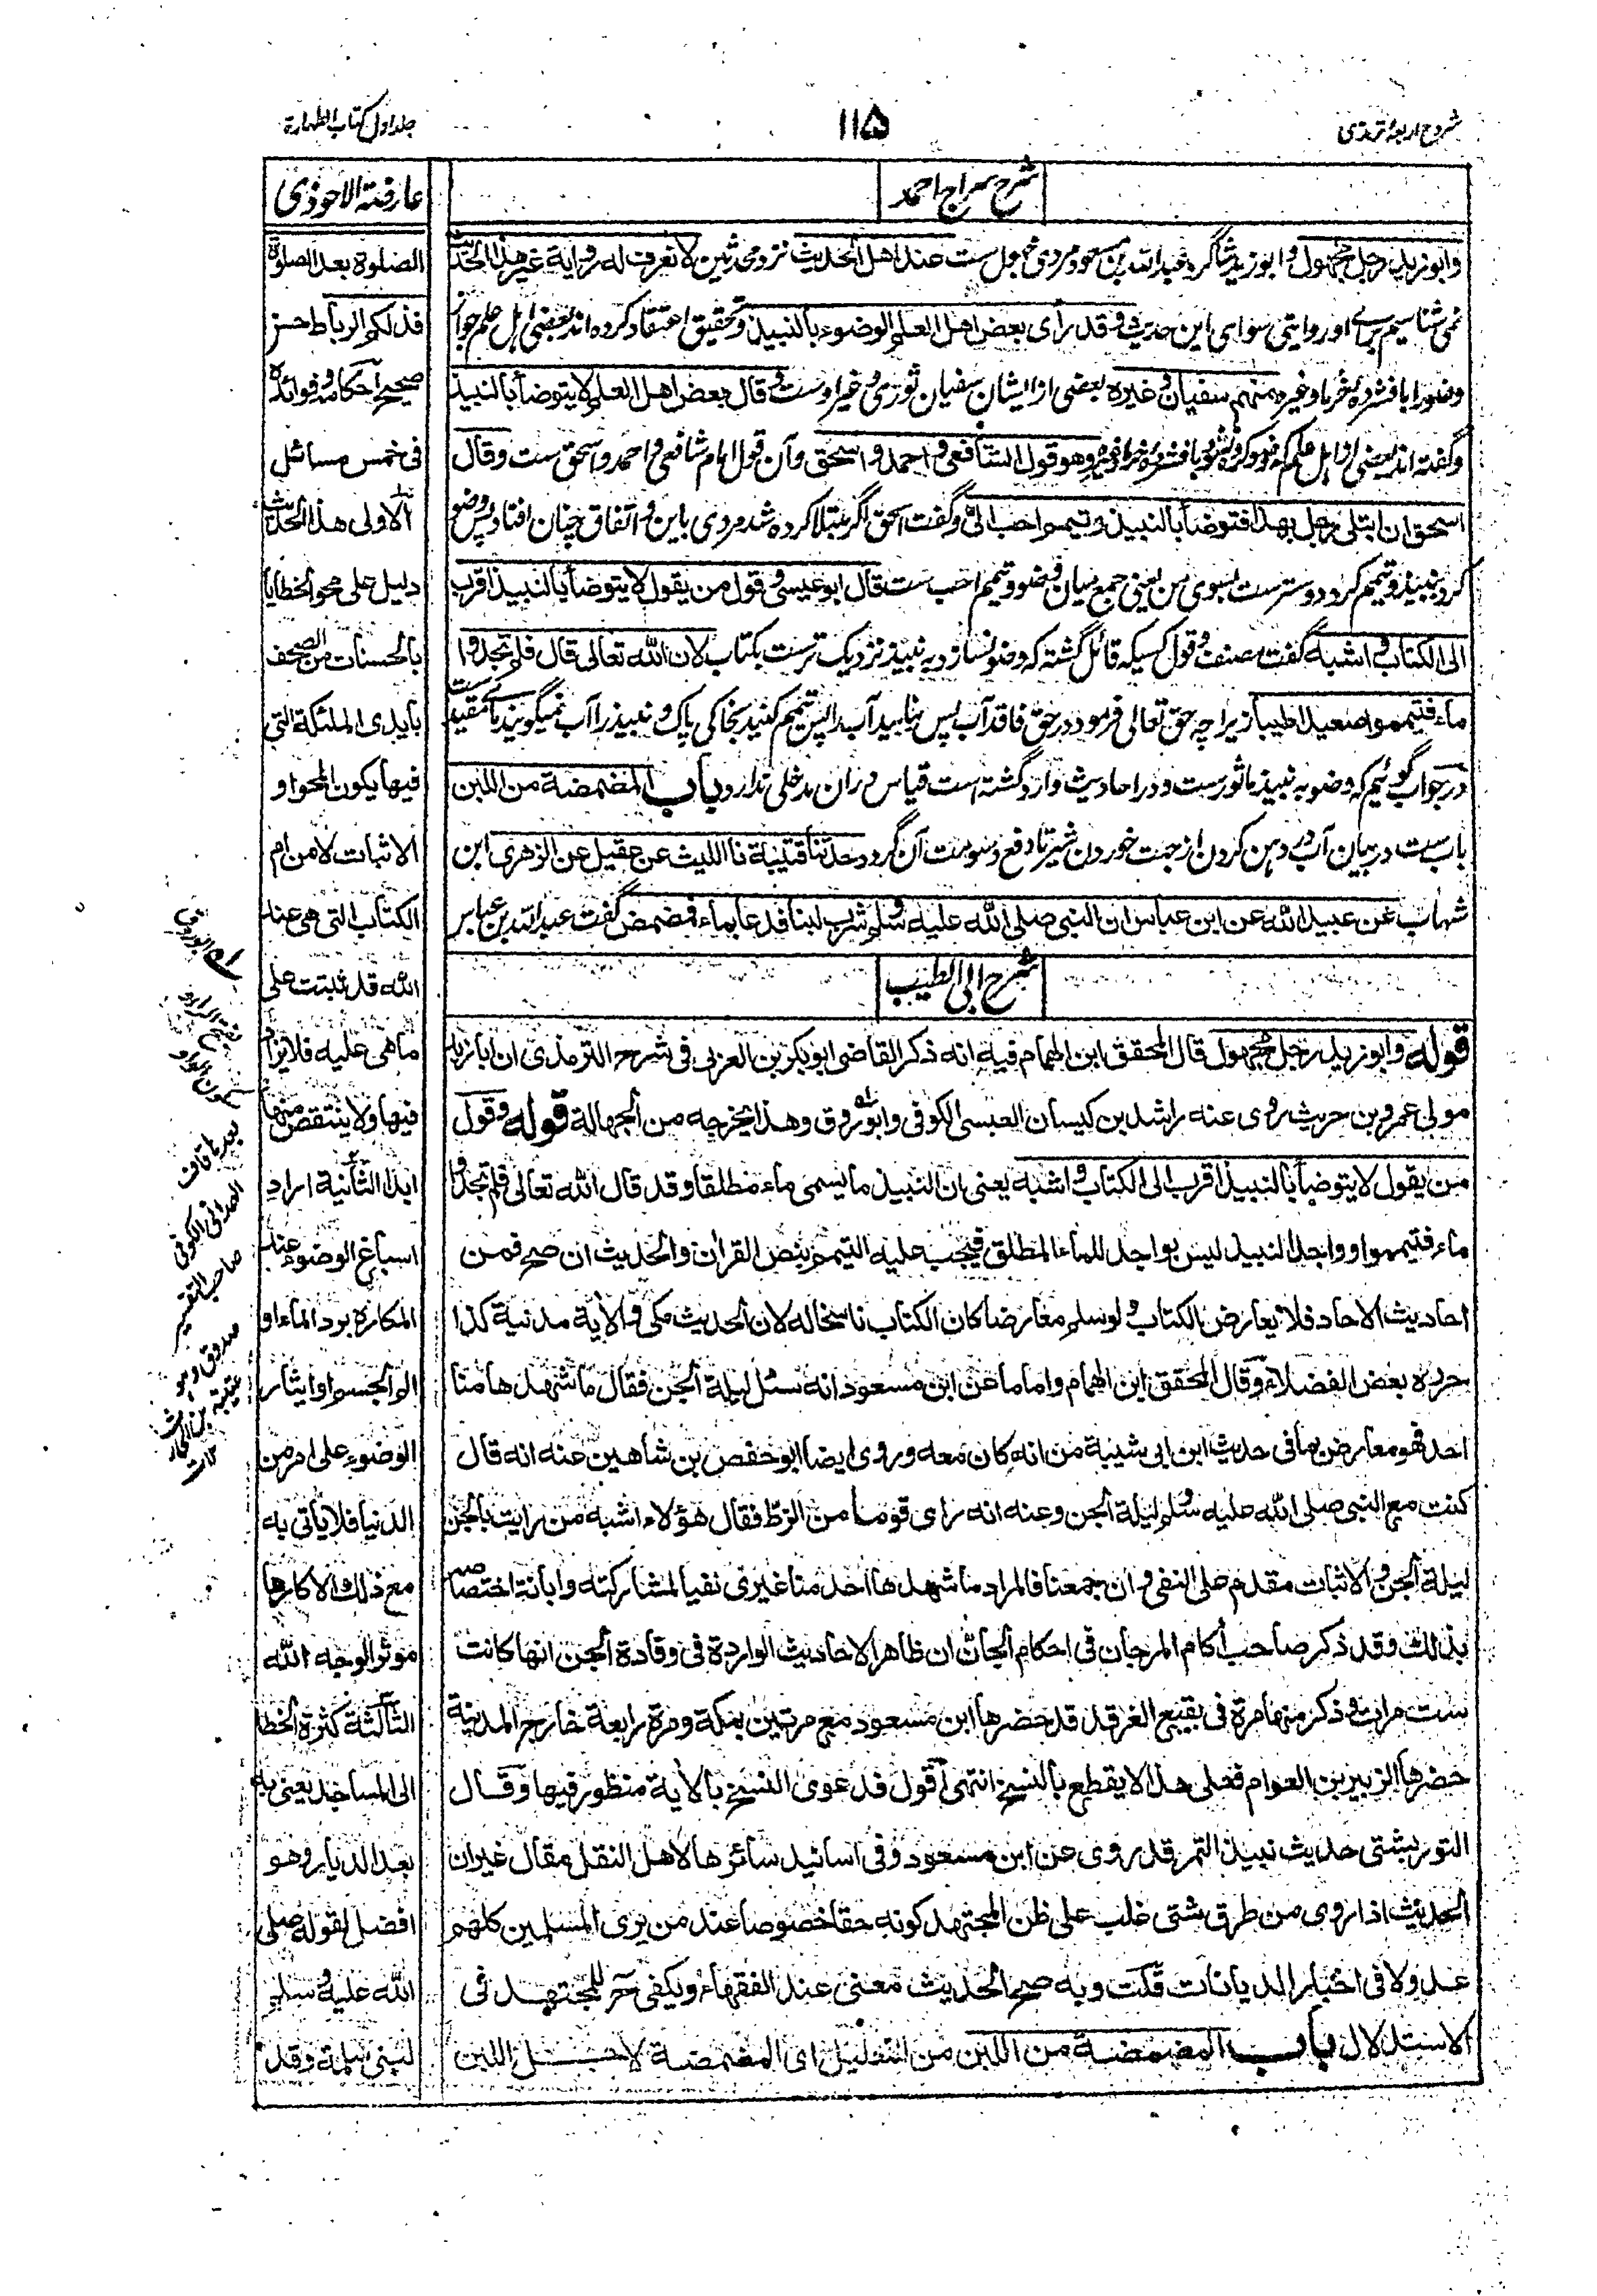 شروح اربعہ ترمذی
۱۱۵
جلد اول کتاب الطہارۃ
شرح سراج احمد
وابو زید رجل مجہول و ابو زید شاگرد عبد اللہ بن مسعود مردی مجہول ست عند اہل الحدیث نزد محدثین لا تعرف لہ روایة غیر ہذا الحدیث
نمی شناسیم برای او روایتی سوای این حدیث و قد رأی بعض اہل العلم الوضوء بالنبیذ و تحقیق اعتقاد کردہ اند بعضی اہل علم جواز
وضو را با فشردہ خرما و غیرہ منہم سفیان و غیرہ بعضی از ایشان سفیان ثوری و غیر اوست و قال بعض اہل العلم لا یتوضأ بالنبیذ
و گفتہ اند بعضی از اہل علم کہ وہو قول الشافعی و احمد و اسحق و آن قول امام شافعی و احمد و اسحق ست و قال
اسحق ان ابتلی رجل بہذا فتوضأ بالنبیذ و تیمم احب الیّ و گفت اسحق اگر مبتلا کردہ شد مردی باین و اتفاق چنان افتاد پس وضو
کرد بنبیذ و تیمم کرد دوسترست بسوی من یعنی جمع میان وضو و تیمم احب ست قال ابو عیسی و قول من یقول لا یتوضأ بالنبیذ اقرب
الی الکتاب و اشبہ گفت مصنف و قول کسیکہ قائل گشتہ کہ وضو نسازد بہ نبیذ نزدیک ترست بکتاب لان اللہ تعالی قال فلم تجدوا
ماء فتیمموا صعیدا طیبا زیرا چہ حق تعالی فرمود در حق فاقد آب پس نیابید آب را پس تیمم کنید بخاکی پاک و نبیذ را آب نمیگویند مقید ست
در جواب گوئیم کہ وضو بہ نبیذ ماثور ست و در احادیث وارد گشتہ است قیاس در ان مدخلی ندارد باب المضمضة من اللبن
باب ست در بیان آب در دہن کردن از جہت خوردن شیر تا دفع دسومت آن گردد حدثنا قتیبة نا اللیث عن عقیل عن الزہری ابن
شہاب عن عبید اللہ عن ابن عباس ان النبی صلی اللہ علیہ وسلم شرب لبنا فدعا بماء فمضمض گفت عبد اللہ بن عباس
شرح ابی الطیب
قولہ وابو زید رجل مجہول قال المحقق ابن الہمام فیہ انہ ذکر القاضی ابو بکر بن العربی فی شرحہ الترمذی ان ابا زید
مولی عمرو بن حریث روی عنہ راشد بن کیسان العبسی الکوفی و ابو روق و ہذا یخرجہ من الجہالة قولہ و قول
من یقول لا یتوضأ بالنبیذ اقرب الی الکتاب و اشبہ یعنی ان النبیذ ما یسمی ماء مطلقا و قد قال اللہ تعالی فلم تجدوا
ماء فتیمموا و واجد النبیذ لیس بواجد للماء المطلق فیجب علیہ التیمم بنص القران والحدیث ان صح فمن
احادیث الاحاد فلا یعارض الکتاب و لو سلم معارضا کان الکتاب ناسخا لہ لان الحدیث مکی و الایة مدنیة کذا
حررہ بعض الفضلاء و قال المحقق ابن الہمام و اما ما عن ابن مسعود انہ سئل لیلة الجن فقال ما شہدہا منا
احد فہو معارض بما فی حدیث ابن ابی شیبة من انہ کان معہ و روی ایضا ابو حفص بن شاہین عنہ انہ قال
کنت مع النبی صلی اللہ علیہ وسلم لیلة الجن و عنہ انہ رای قوما من الزط فقال ہؤلاء اشبہ من رایت بالجن
لیلة الجن و الاثبات مقدم علی النفی و ان جمعنا فالمراد ما شہدہا احد منا غیری نفیا لمشارکتہ و ابانة اختصاصہ
بذلک و قد ذکر صاحب آکام المرجان فی احکام الجان ان ظاہر الاحادیث الواردة فی وفادة الجن انہا کانت
ست مرات و ذکر منہا مرة فی بقیع الغرقد قد حضرہا ابن مسعود مع مرتین بمکة و مرة رابعة خارج المدینة
حضرہا الزبیر بن العوام فعلی ہذا لا یقطع بالنسخ انتہی اقول فدعوی النسخ بالایة منظور فیہا و قال
التوربشتی حدیث نبیذ التمر قد روی عن ابن مسعود و فی اسانید سائرہا لاہل النقل مقال غیر ان
الحدیث اذا روی من طرق شتی غلب علی ظن المجتہد کونہ حقا خصوصا عند من یری المسلمین کلہم
عدولا فی اخبار الدیانات قلت و بہ صح الحدیث معنی عند الفقہاء و یکفی للمجتہد فی
الاستدلال باب المضمضة من اللبن من التعلیل ای المضمضة لاجل اللبن
عارضة الاحوذی
الصلوة بعد الصلوة
فذلکم الرباط حسن
صحیح احکامہ و فوائدہ
فی خمس مسائل
الاولی ہذا الحدیث
دلیل علی محو الخطایا
بالحسنات من الصحف
بایدی الملئکة التی
فیہا یکون المحو و
الاثبات لا من ام
الکتاب التی ہی عند
اللہ قد ثبتت علی
ما ہی علیہ فلا یزاد
فیہا ولا ینتقص منہا
ابدا الثانیة اراد
اسباغ الوضوء عند
المکارہ برد الماء او
الم الجسم او ایثار
الوضوء علی امر من
الدنیا فلا یأتی بہ
مع ذلک الا کارہا
موثرا لوجہ اللہ
الثالثة کثرة الخطا
الی المساجد یعنی بہ
بعد الدیار و ہو
افضل لقولہ صلی
اللہ علیہ وسلم
لبنی سلمة و قد
ابو روق
بعدہا قاف
الکوفی
صاحب التفسیر
صدوق و ہو
عطیة بن الحارث